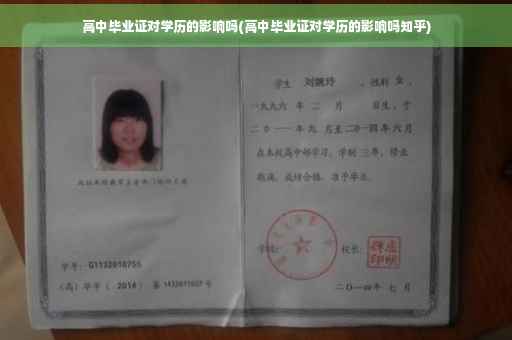 高中毕业证对学历的影响吗(高中毕业证对学历的影响吗知乎)
学号: G1132010755
(高) 毕字 ( 2014 ) 第 1432011027 号
学生 刘婉玲 , 性别 女 ,
一九九六 年 二 月 日生, 于
二〇一一 年 九 月至 二〇一四 年 六 月
在本校高中部学习, 学制 三 年, 修业
期满, 成绩合格, 准予毕业。
学校:
校长:
二〇一四 年 七 月